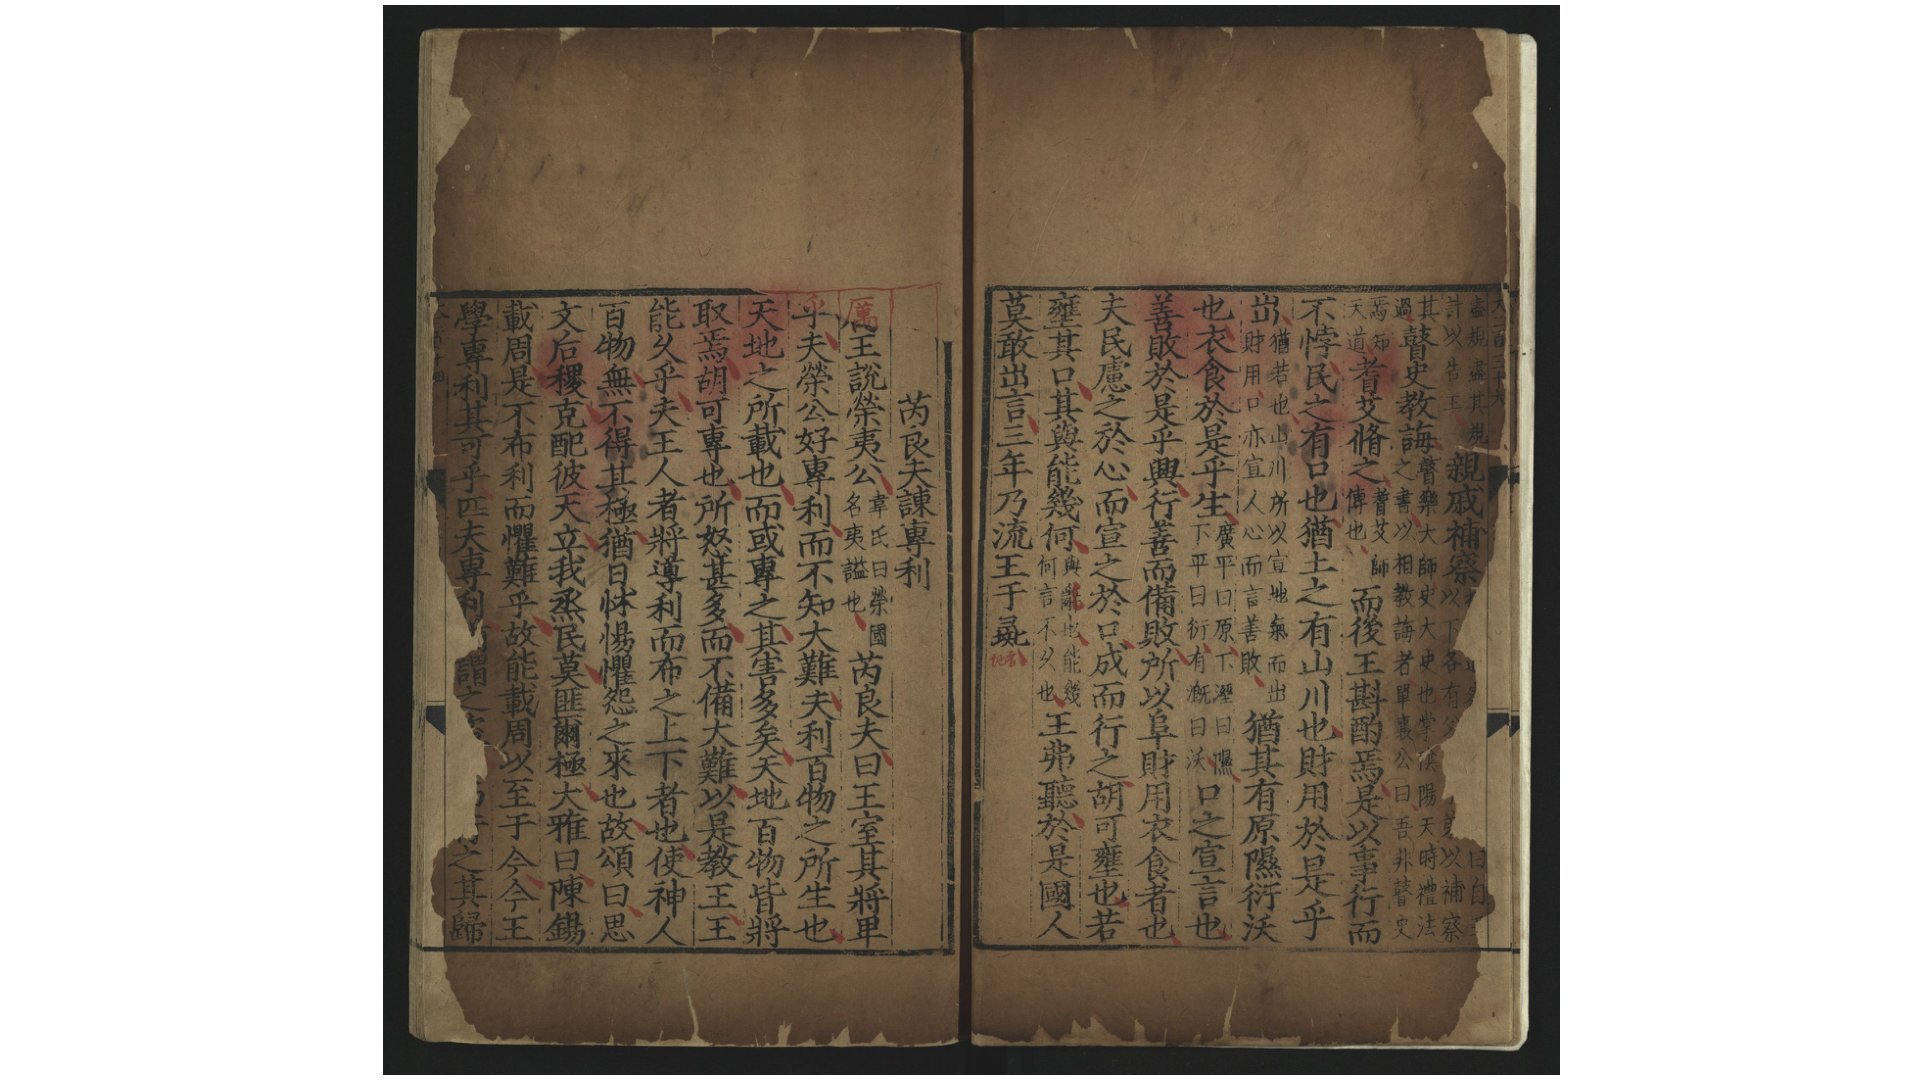 盡規盡其規
計以告王 親戚補察
以補察
其
過瞽史教誨瞽樂大師史大史也掌陽天時禮法
之書以相教誨者單襄公曰吾非瞽史
焉知
天道耆艾脩之耆艾師
傅也而後王斟酌焉是以事行而
不悖民之有口也猶土之有山川也財用於是乎
出猶若也山川所以宣地氣而出
財用口亦宣人心而言善敗猶其有原隰衍沃
也衣食於是乎生廣平曰原下溼曰隰
下平曰衍有溉曰沃口之宣言也
善敗於是乎興行善而備敗所以阜財用衣食者也
夫民慮之於心而宣之於口成而行之胡可壅也若
壅其口其與能幾何與辭也能幾
何言不久也王弗聽於是國人
莫敢出言三年乃流王于彘
芮良夫諫專利
厲王說榮夷公韋氏曰榮國
名夷謚也芮良夫曰王室其將卑
乎夫榮公好專利而不知大難夫利百物之所生也
天地之所載也而或專之其害多矣天地百物皆將
取焉胡可專也所怒甚多而不備大難以是教王王
能久乎夫王人者將導利而布之上下者也使神人
百物無不得其極猶日怵惕懼怨之來也故頌曰思
文后稷克配彼天立我烝民莫匪爾極大雅曰陳錫
載周是不布利而懼難乎故能載周以至于今今王
學專利其可乎匹夫專利謂之之其歸